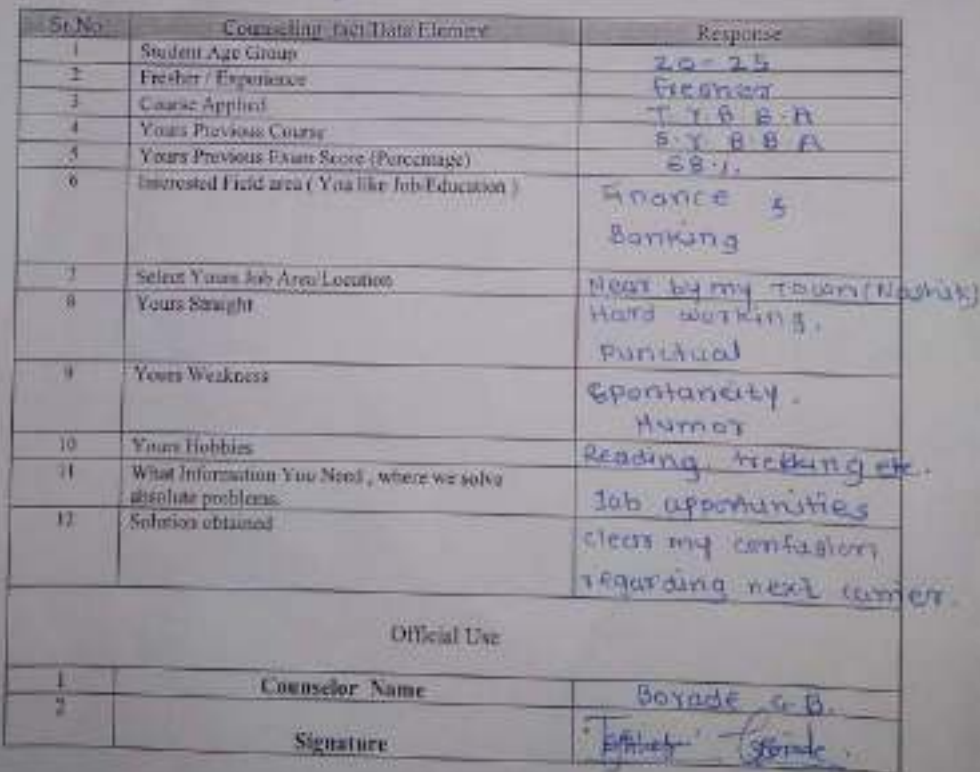 Sr.No Counseling fact/Data Element Response
1 Student Age Group 20-25
2 Fresher / Experience Fresher
3 Course Applied T.Y.B.B.A
4 Yours Previous Course S.Y.B.B.A
5 Yours Previous Exam Score (Percentage) 68%
6 Interested Field area ( You like Job/Education ) Finance &
Banking
7 Select Yours Job Area/Location Near by my Town (Nashik)
8 Yours Straight Hard working,
Punctual
9 Yours Weakness Spontaneity.
Humor
10 Yours Hobbies Reading, trekking etc.
11 What Information You Need , where we solve
absolute problems. Job apportunities
12 Solution obtained clears my confusion
regarding next carrier.
Official Use
1 Counselor Name Borade G.B.
2
Signature